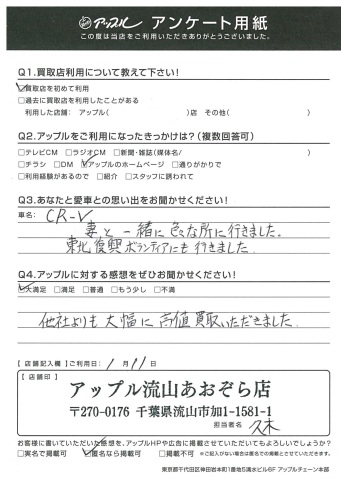 アップル アンケート用紙
この度は当店をご利用いただきありがとうございました。
Q1.買取店利用について教えて下さい!
☑買取店を初めて利用
□過去に買取店を利用したことがある
利用した店舗: アップル( )店 その他( )
Q2.アップルをご利用になったきっかけは?(複数回答可)
□テレビCM □ラジオCM □新聞・雑誌(媒体名/ )
□チラシ □DM ☑アップルのホームページ □通りがかりで
□利用経験があるので □紹介 □スタッフに誘われて
Q3.あなたと愛車との思い出をお聞かせください!
車名: CR-V
妻と一緒に色々な所に行きました。
東北復興ボランティアにも行きました。
Q4.アップルに対する感想をぜひお聞かせください!
☑大満足 □満足 □普通 □もう少し □不満
他社よりも大幅に高値買取いただきました.
【店舗記入欄】ご利用日: 1月11日
【店舗印】
アップル流山あおぞら店
〒270-0176 千葉県流山市加1-1581-1
担当者名 久木
お客様に書いていただいた感想を、アップルHPや広告に掲載させていただいてもよろしいでしょうか?
□実名で掲載可 ☑匿名なら掲載可 □掲載不可 ※ご記入がない場合は匿名での掲載とさせていただきます。
東京都千代田区神田岩本町1番地5清水ビル6F アップルチェーン本部